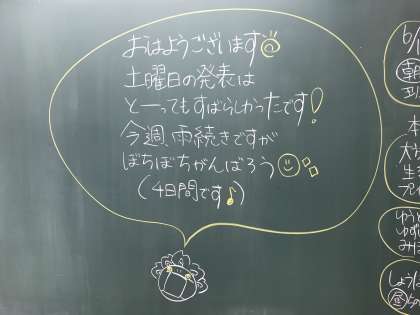 おはようございます
土曜日の発表は
とーってもすばらしかったです!
今週、雨続きですが
ぼちぼちがんばろう
(4日間です♪)
6/
朝
大
生
ゆう
ゆず
み
しょう
昼